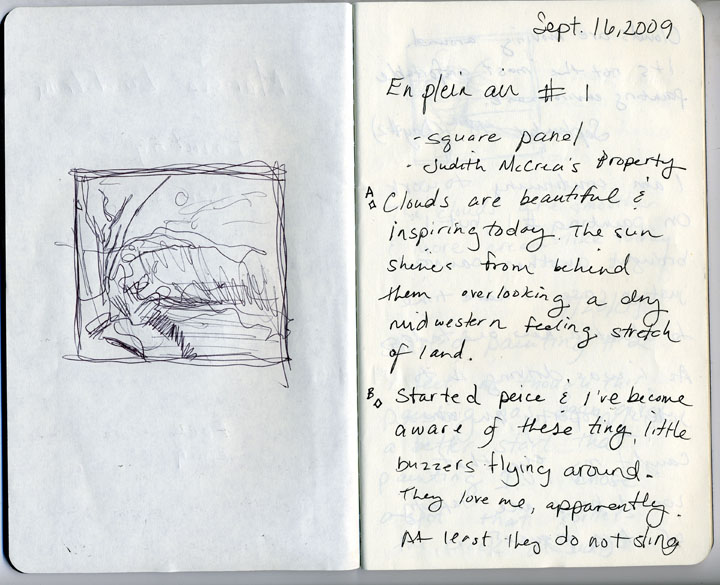 Sept. 16, 2009
En plein air # 1
- square panel
- Judith McCrea's Property
A Clouds are beautiful &
inspiring today. The sun
shines from behind
them overlooking a dry
midwestern feeling stretch
of land.
B Started peice & I've become
aware of these tiny, little
buzzers flying around.
They love me, apparently.
At least they do not sting